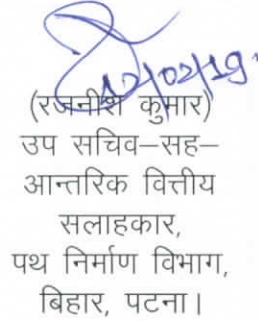 12/02/19.
(रजनीश कुमार)
उप सचिव–सह–
आन्तरिक वित्तीय
सलाहकार,
पथ निर्माण विभाग,
बिहार, पटना।